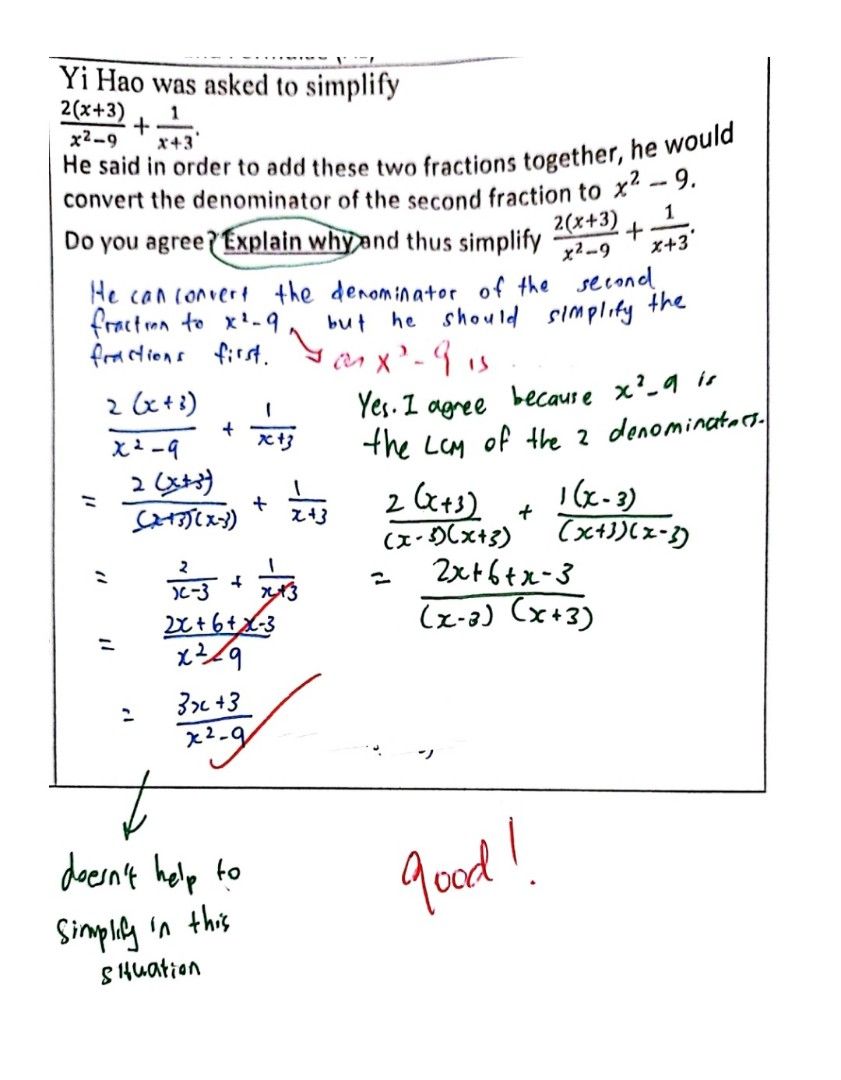 Yi Hao was asked to simplify
2(x+3)/x²−9 + 1/x+3.
He said in order to add these two fractions together, he would
convert the denominator of the second fraction to x² − 9.
Do you agree? Explain why and thus simplify 2(x+3)/x²−9 + 1/x+3.
He can convert the denominator of the second
fraction to x²-9, but he should simplify the
fractions first.
as x²-9 is
2(x+3)/x²-9 + 1/x+3
= 2(x+3)/(x+3)(x-3) + 1/x+3
= 2/x-3 + 1/x+3
= 2x+6+x-3/x²-9
= 3x+3/x²-9
Yes. I agree because x²-9 is
the LCM of the 2 denominators.
2(x+3)/(x-3)(x+3) + 1(x-3)/(x+3)(x-3)
= 2x+6+x-3/(x-3)(x+3)
doesn't help to
simplify in this
situation
good!